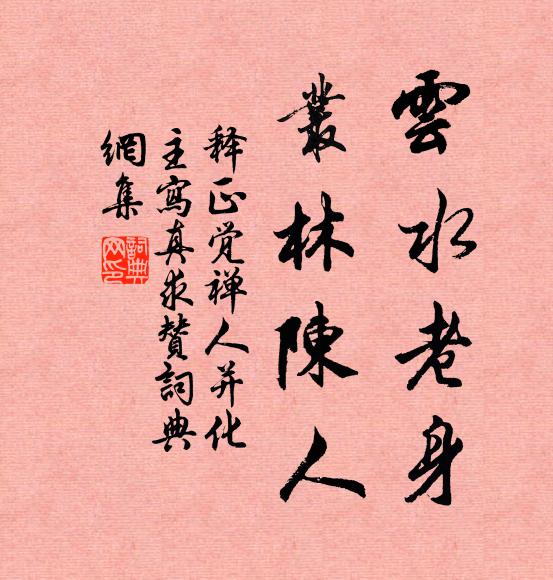 雲水老身
叢林陳人
释正觉禅人并化
主寫真求贊詞典
網集
詞典網印